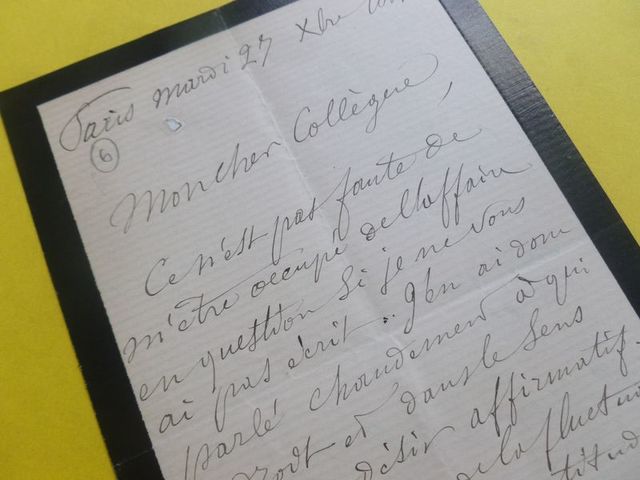 Paris mardi 27 Xbre
6
Mon cher Collègue,
Ce n'est pas faute de
m'être occupé de l'affaire
en question si je ne vous
ai pas écrit. J'en ai
parlé chaudement à qui
droit et dans le sens
désir affirmatif.
de la